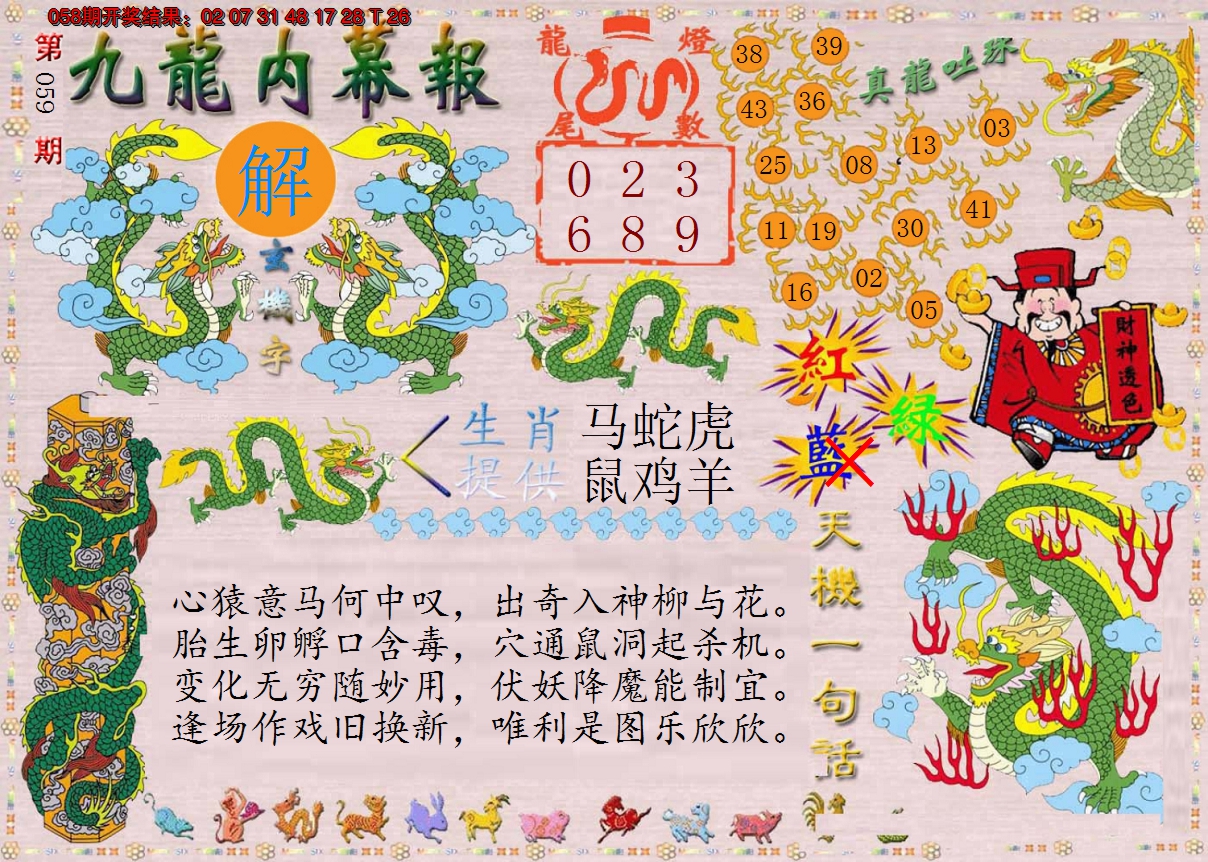 058期开奖结果：02 07 31 48 17 28 T 26
第059期
九龍内幕報
解
玄機字
龍燈尾數
0 2 3
6 8 9
真龍吐珠
38 39
43 36
25 08 13 03
11 19 30 41
16 02 05
財神透色
紅
綠
藍
生肖 马蛇虎
提供 鼠鸡羊
天機一句话
心猿意马何中叹，出奇入神柳与花。
胎生卵孵口含毒，穴通鼠洞起杀机。
变化无穷随妙用，伏妖降魔能制宜。
逢场作戏旧换新，唯利是图乐欣欣。